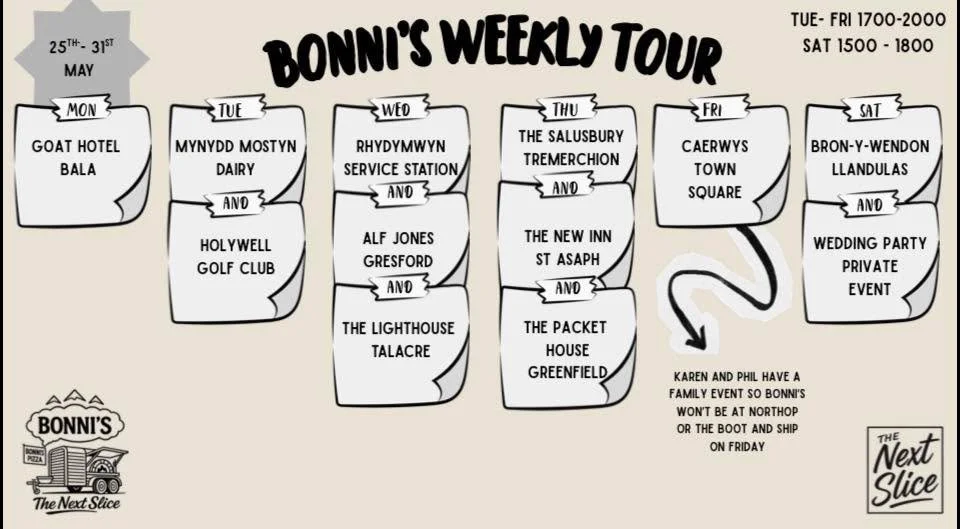 25TH - 31ST
MAY
BONNI'S WEEKLY TOUR
TUE- FRI 1700-2000
SAT 1500 - 1800
MON
GOAT HOTEL
BALA
TUE
MYNYDD MOSTYN
DAIRY
AND
HOLYWELL
GOLF CLUB
WED
RHYDYMWYN
SERVICE STATION
AND
ALF JONES
GRESFORD
AND
THE LIGHTHOUSE
TALACRE
THU
THE SALUSBURY
TREMERCHION
AND
THE NEW INN
ST ASAPH
AND
THE PACKET
HOUSE
GREENFIELD
FRI
CAERWYS
TOWN
SQUARE
KAREN AND PHIL HAVE A
FAMILY EVENT SO BONNI'S
WON'T BE AT NORTHOP
OR THE BOOT AND SHIP
ON FRIDAY
SAT
BRON-Y-WENDON
LLANDULAS
AND
WEDDING PARTY
PRIVATE
EVENT
BONNI'S
BONNI'S
PIZZA
The Next Slice
THE
Next
Slice